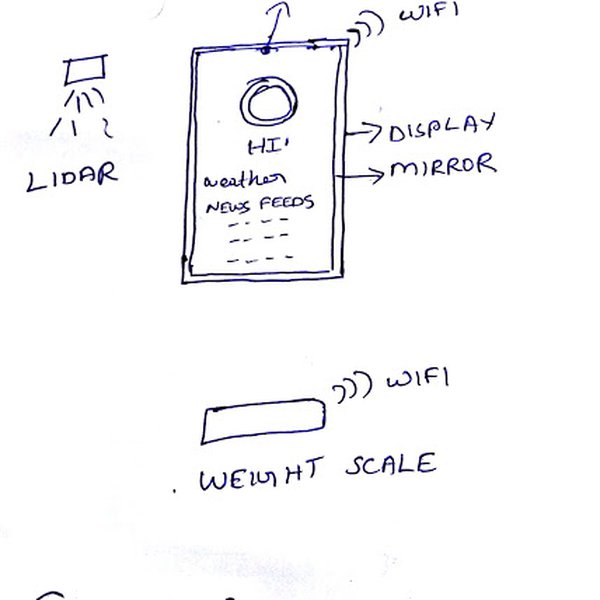 WIFI
LIDAR
HI'
weather
NEWS FEEDS
DISPLAY
MIRROR
WIFI
WEIGHT SCALE